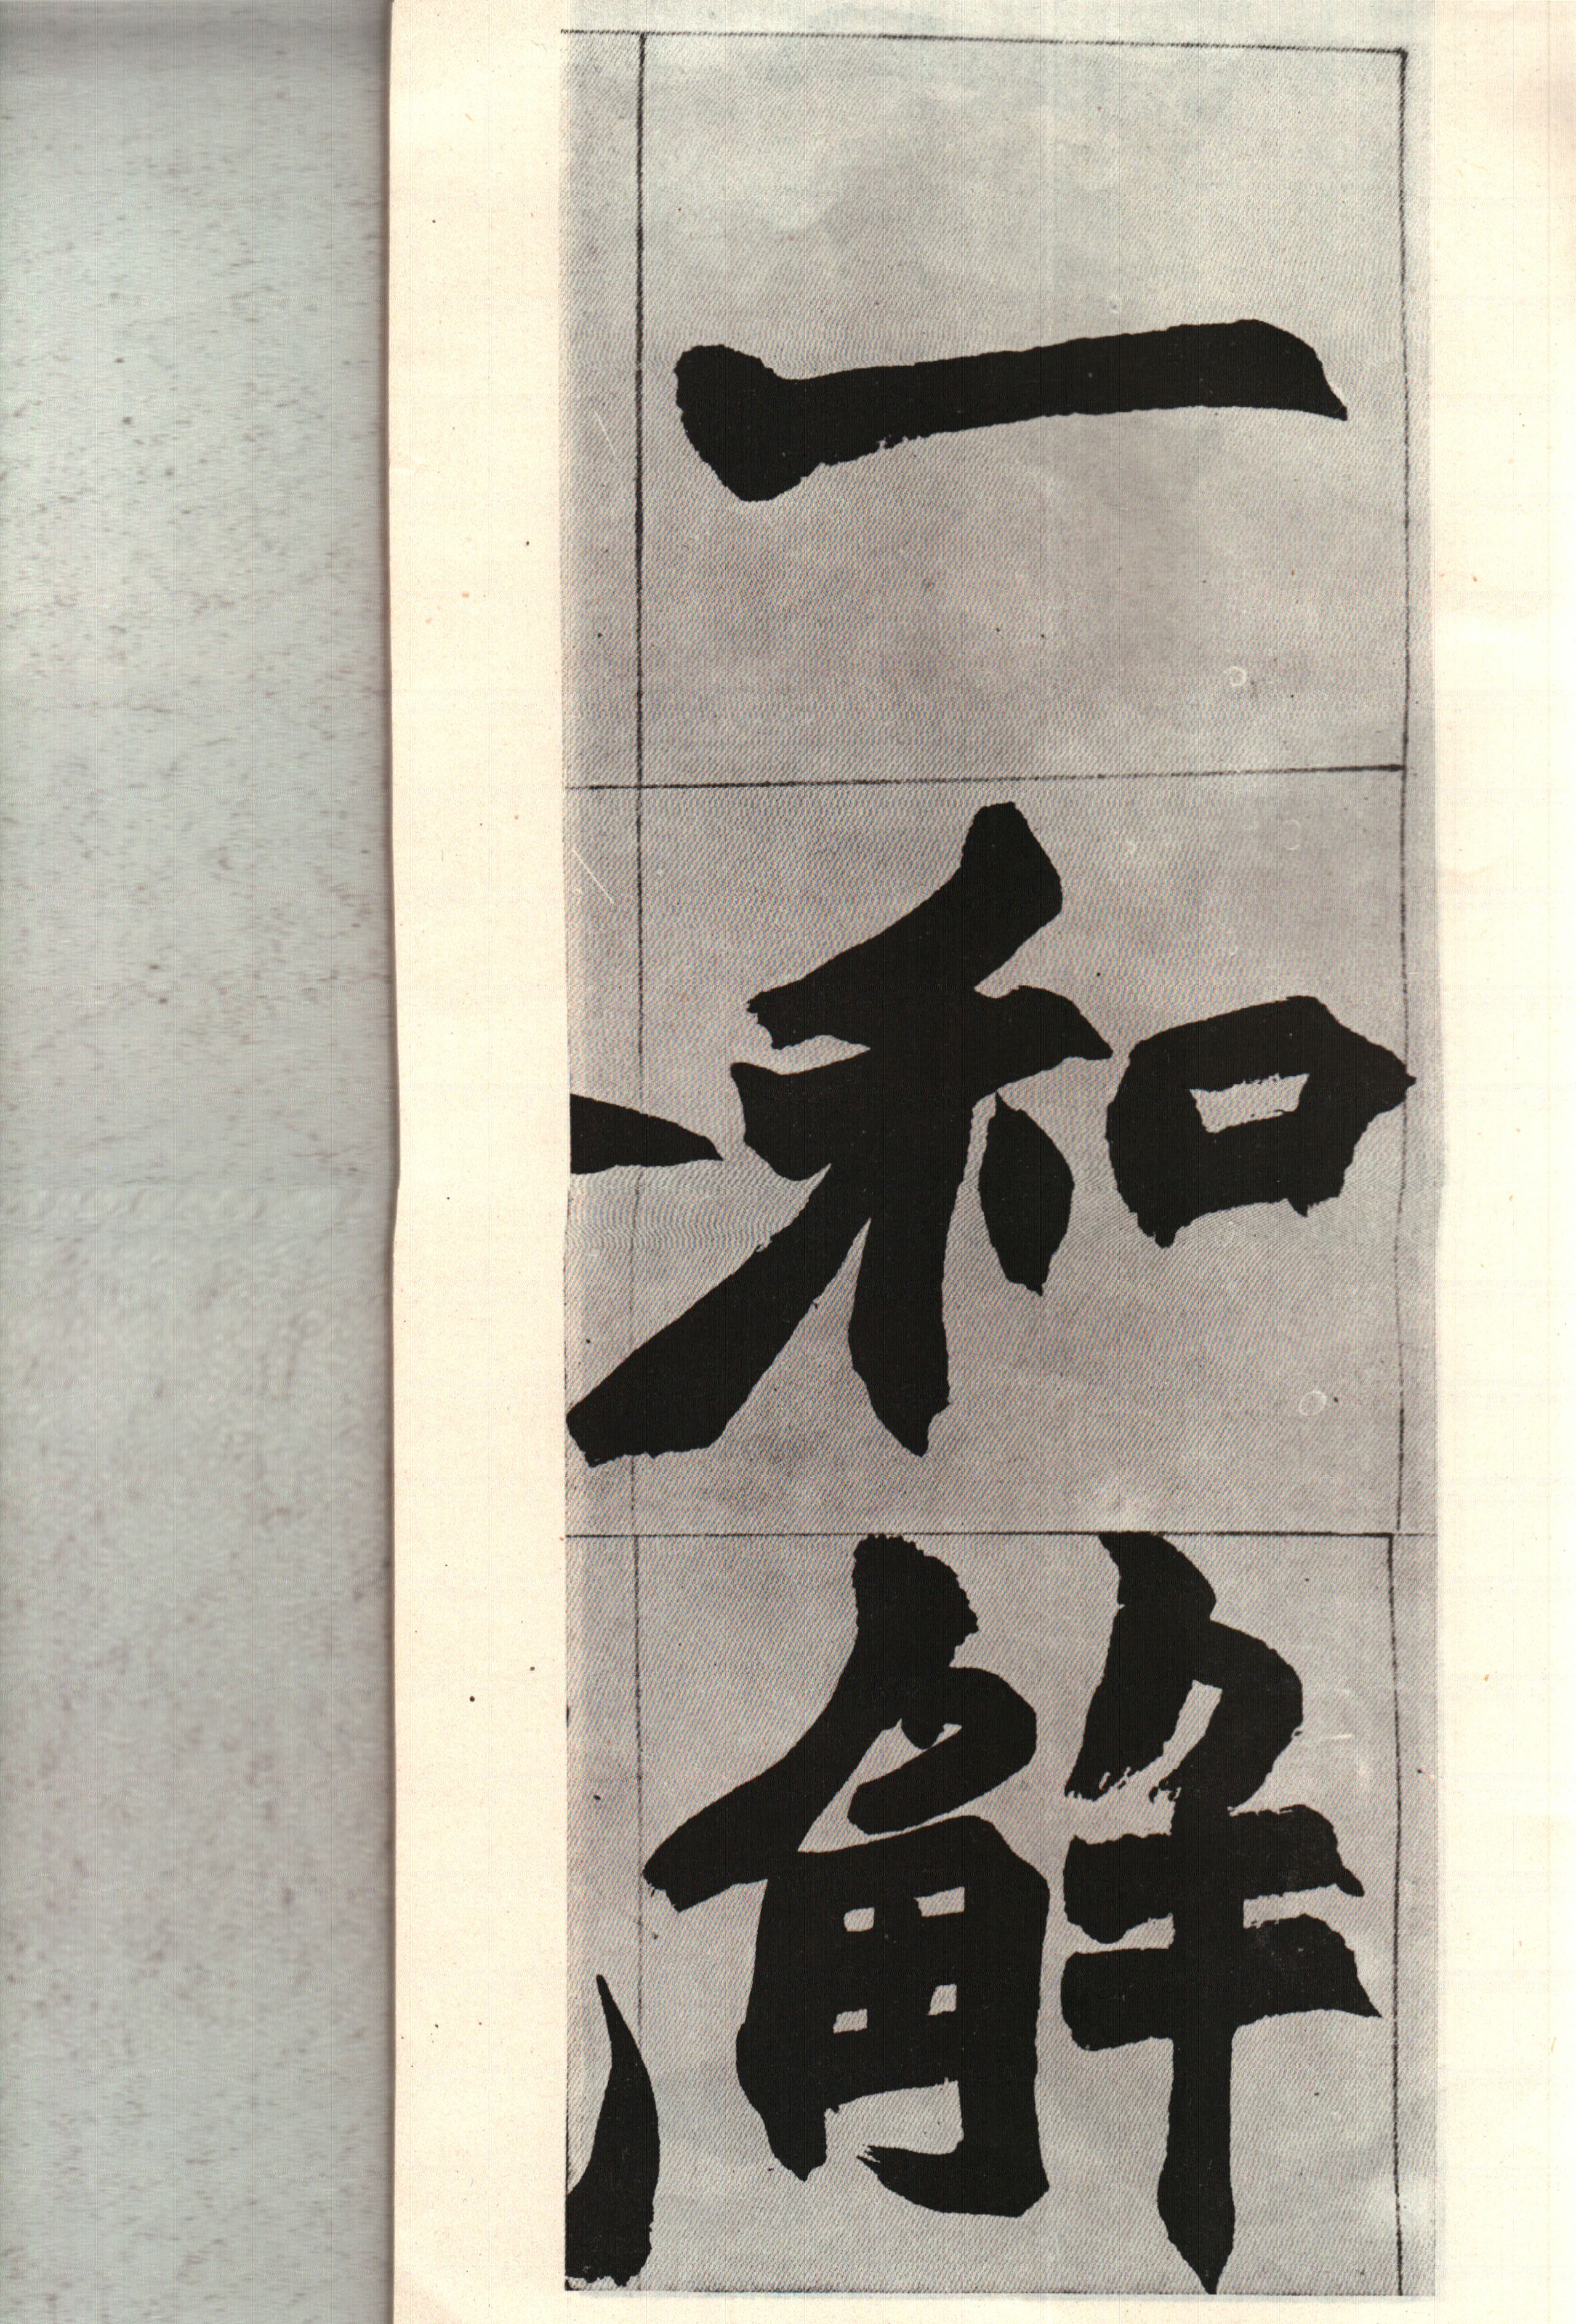 一和解